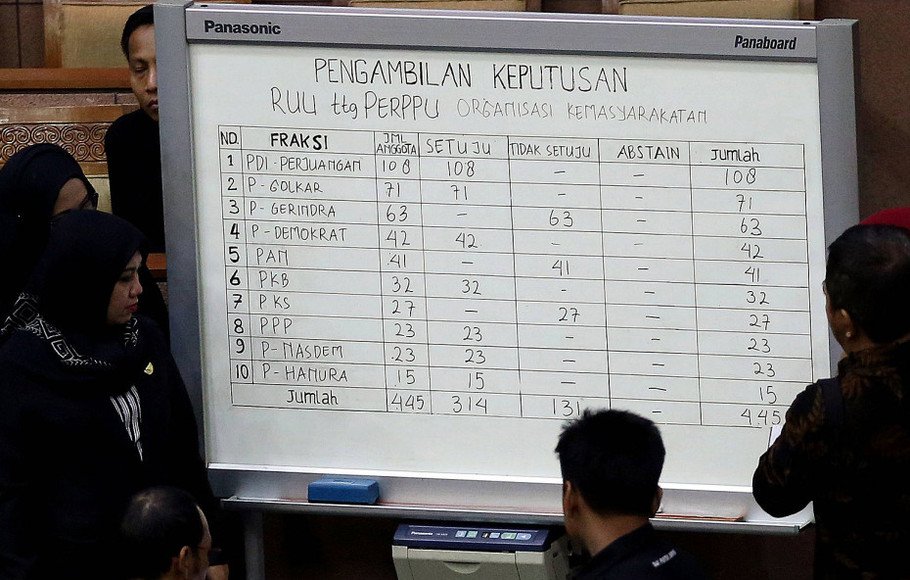 Panasonic
Panaboard
PENGAMBILAN KEPUTUSAN
RUU ttg PERPPU ORGANISASI KEMASYARAKATAN
NO. FRAKSI JML ANGGOTA SETUJU TIDAK SETUJU ABSTAIN Jumlah
1 PDI-PERJUANGAN 108 108 – – 108
2 P-GOLKAR 71 71 – – 71
3 P-GERINDRA 63 – 63 – 63
4 P-DEMOKRAT 42 42 – – 42
5 PAN 41 – 41 – 41
6 PKB 32 32 – – 32
7 PKS 27 – 27 – 27
8 PPP 23 23 – – 23
9 P-NASDEM 23 23 – – 23
10 P-HANURA 15 15 – – 15
Jumlah 445 314 131 – 445
Panasonic